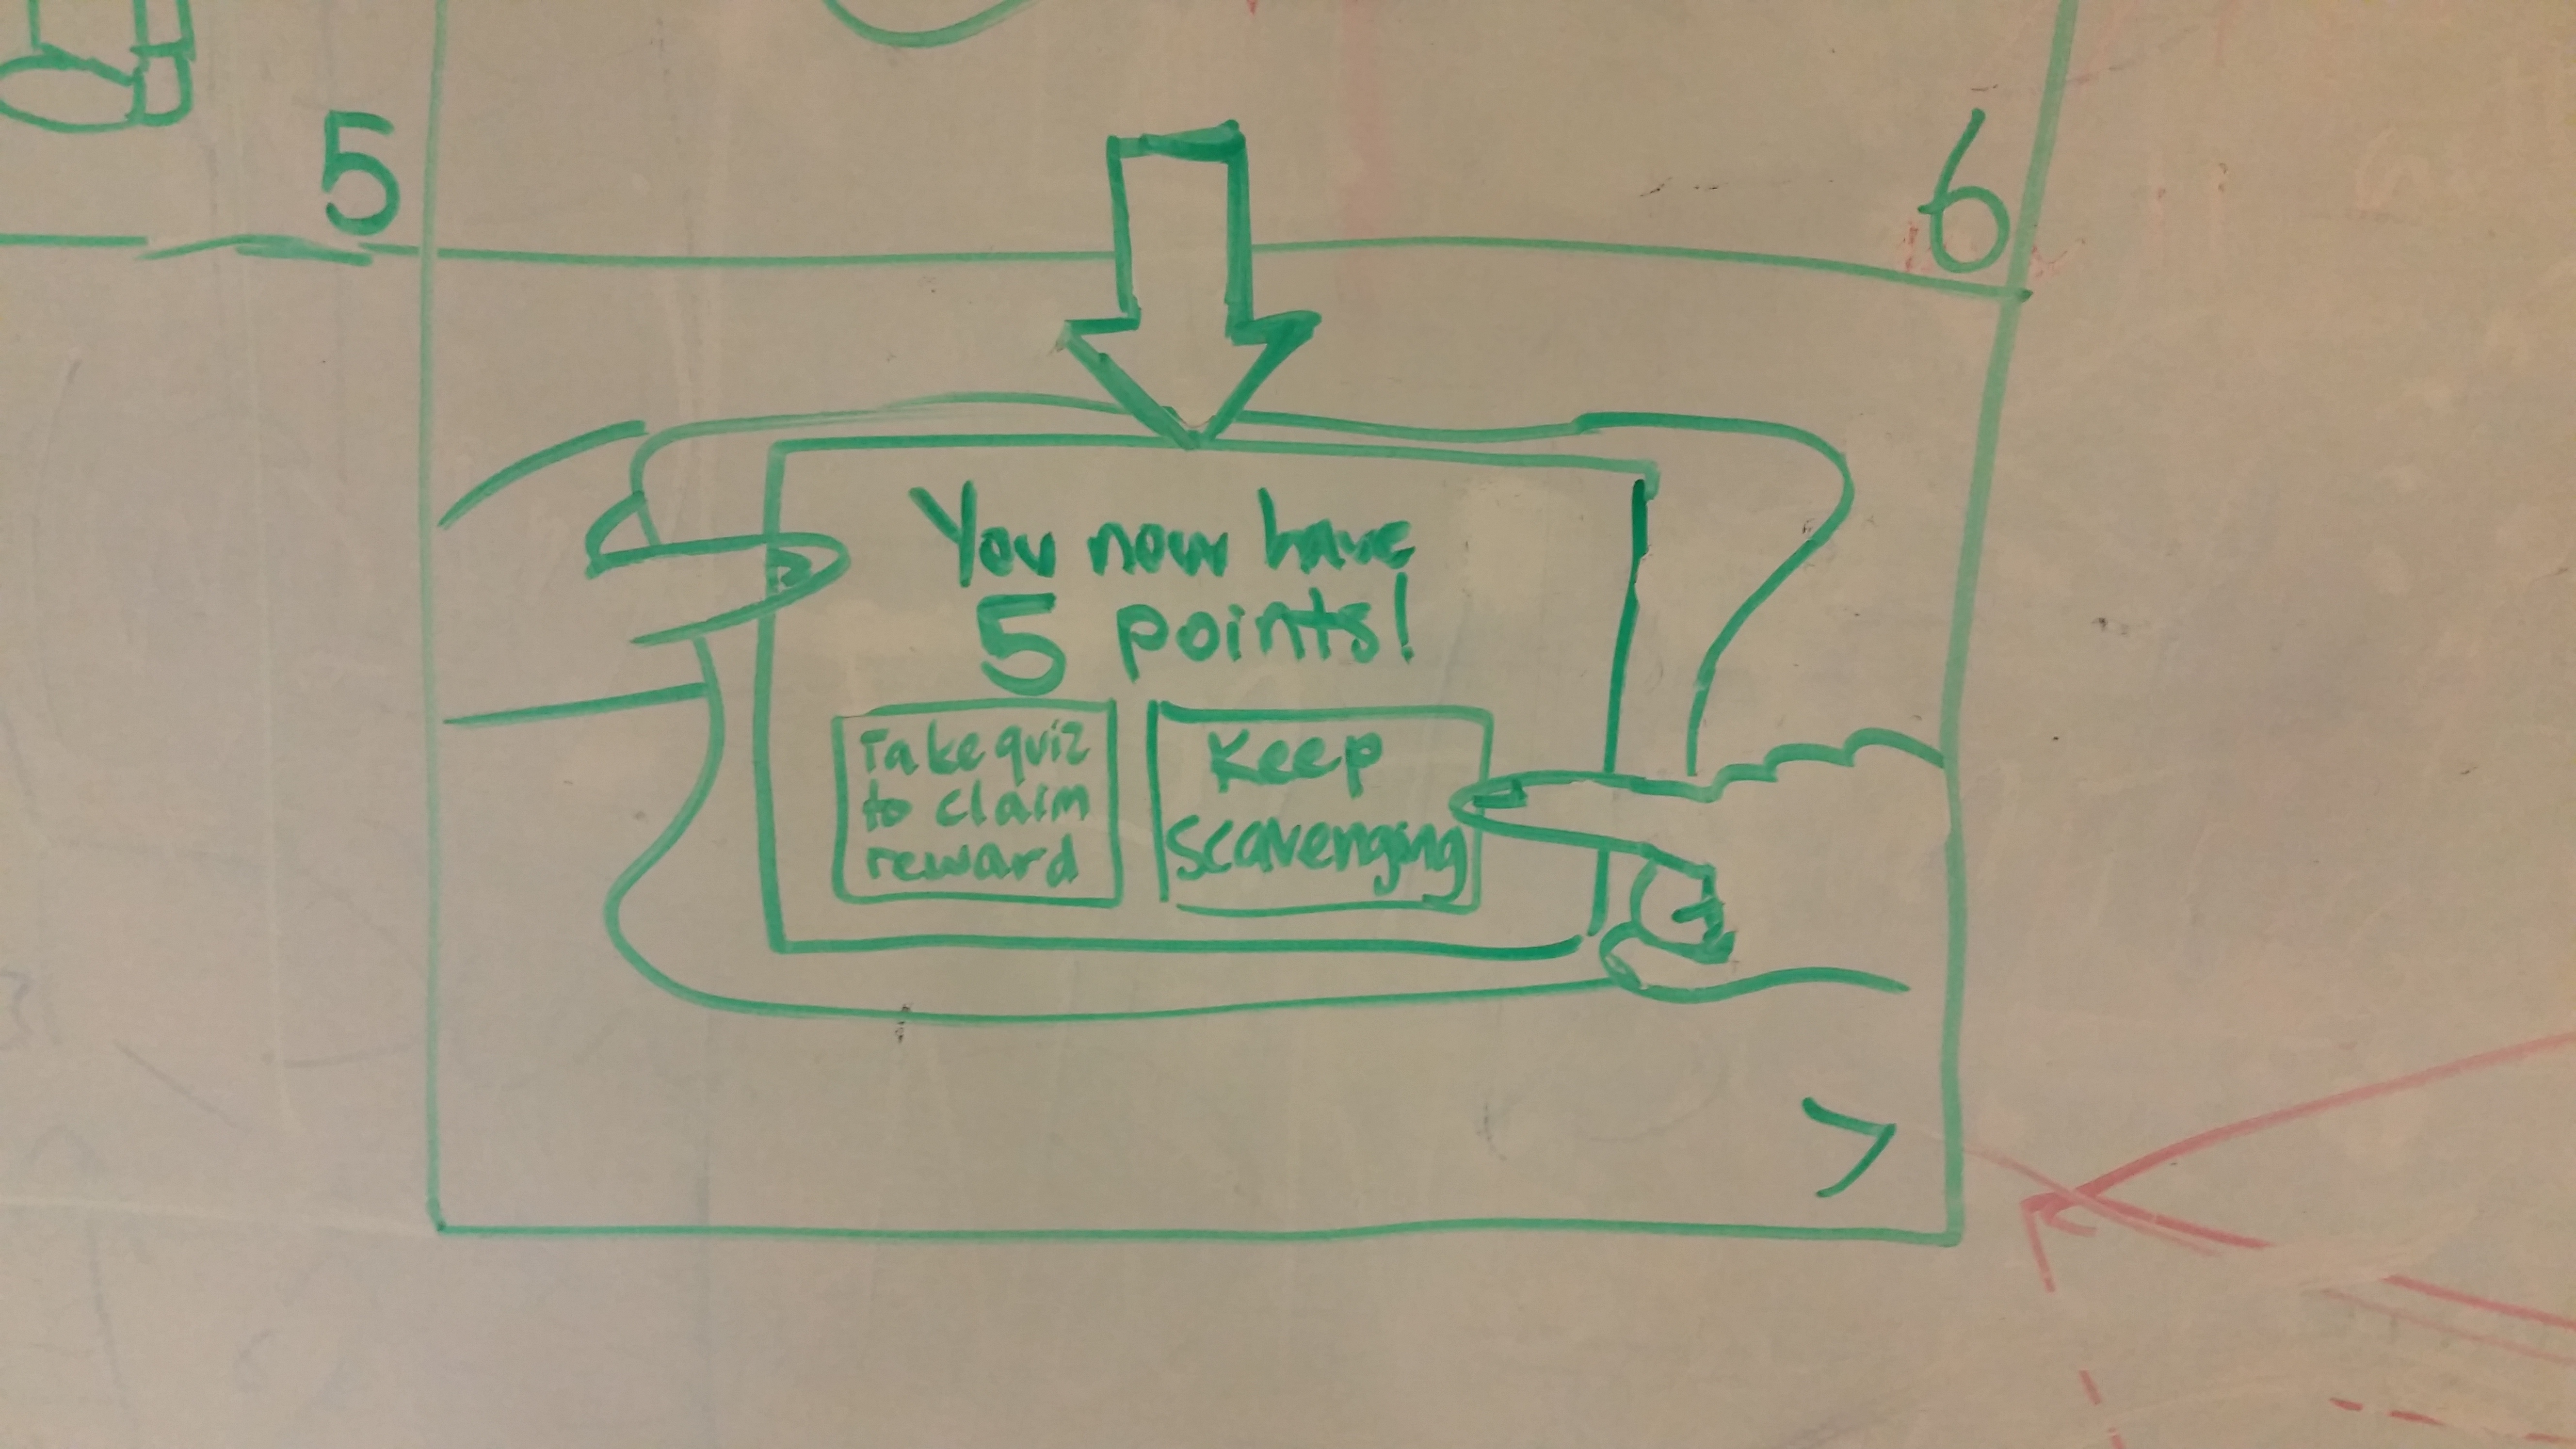 5
6
You now have
5 points!
Take quiz
to claim
reward
Keep
scavenging
7